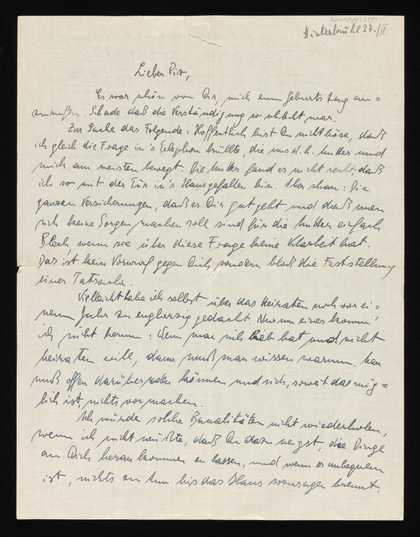 Hinterbrühl 27./II.
Lieber
Es war schön von Dir, mich zum Geburtstag an=
zurufen. Schade daß die Verständigung so schlecht war.
Zur Sache das Folgende: Hoffentlich bist Du nicht böse, daß
ich gleich die Frage in's Telephon brüllte, die uns d. h. Mutter und
mich am meisten bewegt. Die Mutter fand es nicht recht, daß
ich so mit der Tür in's Haus gefallen bin. Aber schau: Die
ganzen Versicherungen, daß es Dir gut geht und daß man
sich keine Sorgen machen soll sind für die Mutter einfach
Blech, wenn sie über diese Frage keine Klarheit hat.
Das ist kein Vorwurf gegen Dich, sondern bloß die Feststellung
einer Tatsache.
Vielleicht habe ich selbst über das Heiraten noch vor ei=
nem Jahr zu engherzig gedacht. Nur um eines komm'
ich nicht herum: Wenn man sich lieb hat und nicht
heiraten will, dann muß man wissen warum. Man
muß offen darüber reden können und sich, soweit das mög=
lich ist, nichts vormachen.
Ich würde solche Banalitäten nicht wiederholen,
wenn ich nicht wüßte, daß Du dazu neigst, die Dinge
an Dich herankommen zu lassen, und wenn es unbequem
ist, nichts zu tun bis das Haus sozusagen brennt.